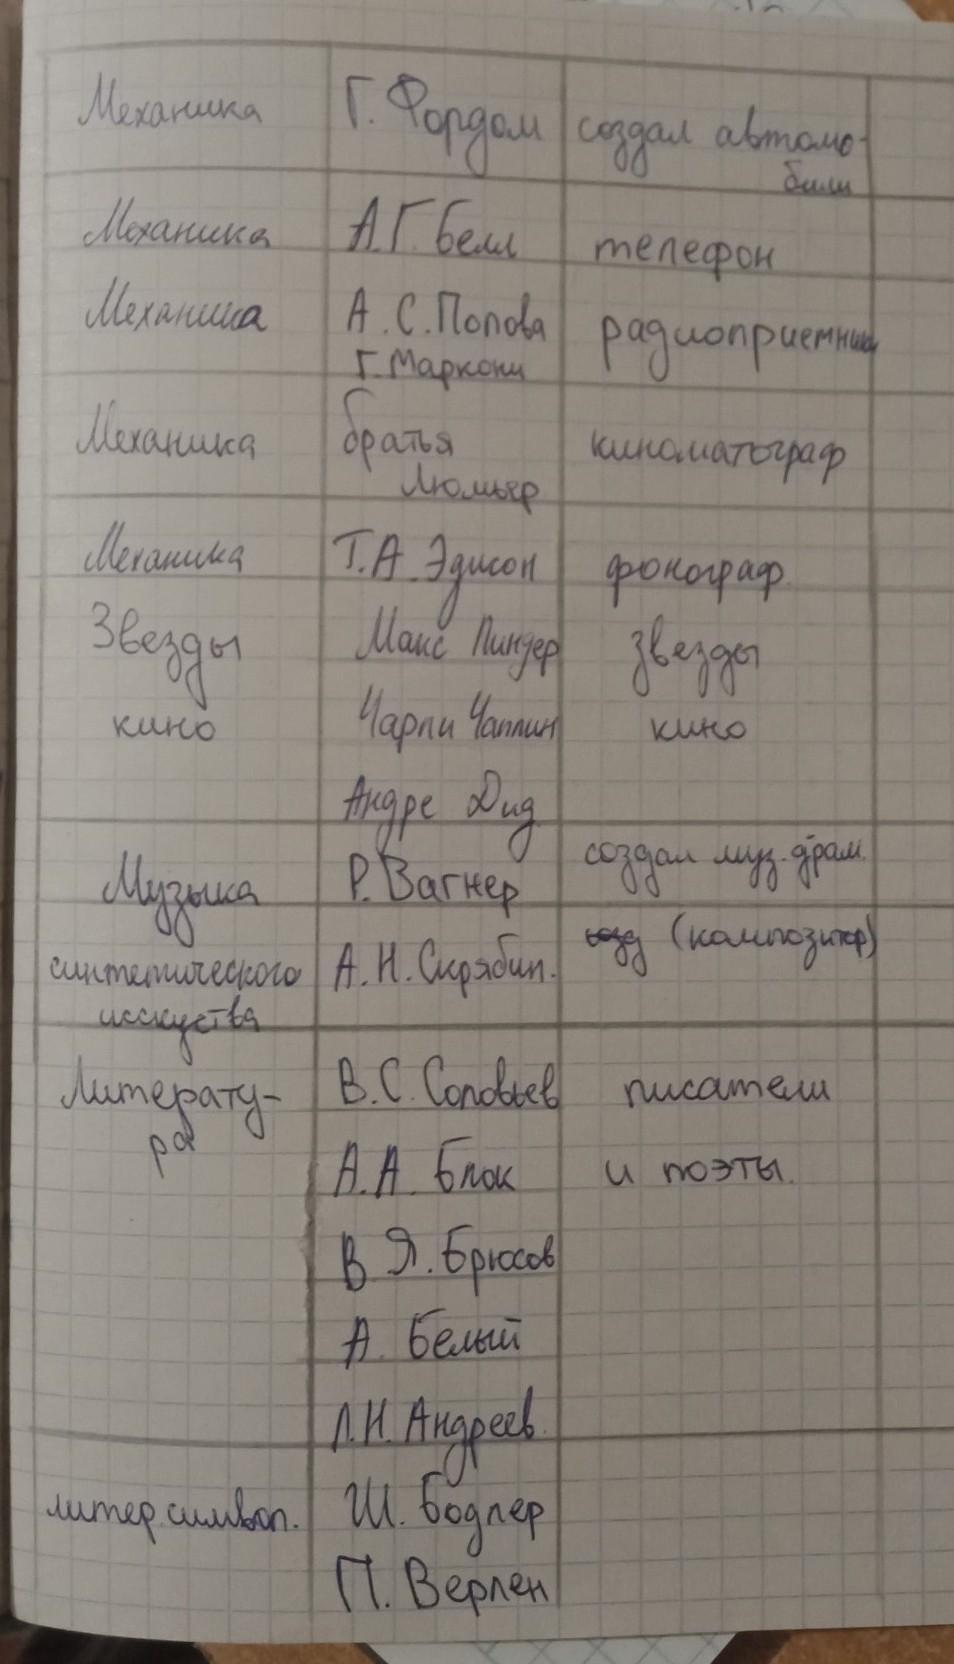 Механика Г. Фордом создал автомо-
били
Механика А.Г. Белл телефон
Механика А.С. Попова радиоприемник
Г. Маркони
Механика братья киноматограф
Люмьер
Механика Т.А. Эдисон фонограф.
Звезды Макс Линдер звезды
кино Чарли Чаплин кино
Андре Дид
создал муз. драм.
Музыка Р. Вагнер
(композитор)
синтетического А.Н. Скрябин.
исскуства
Литерату- В.С. Соловьев писатели
ра
А.А. Блок и поэты.
В Я. Брюсов
А. Белый
Л.Н. Андреев.
литер. символ. Ш. Бодлер
П. Верлен